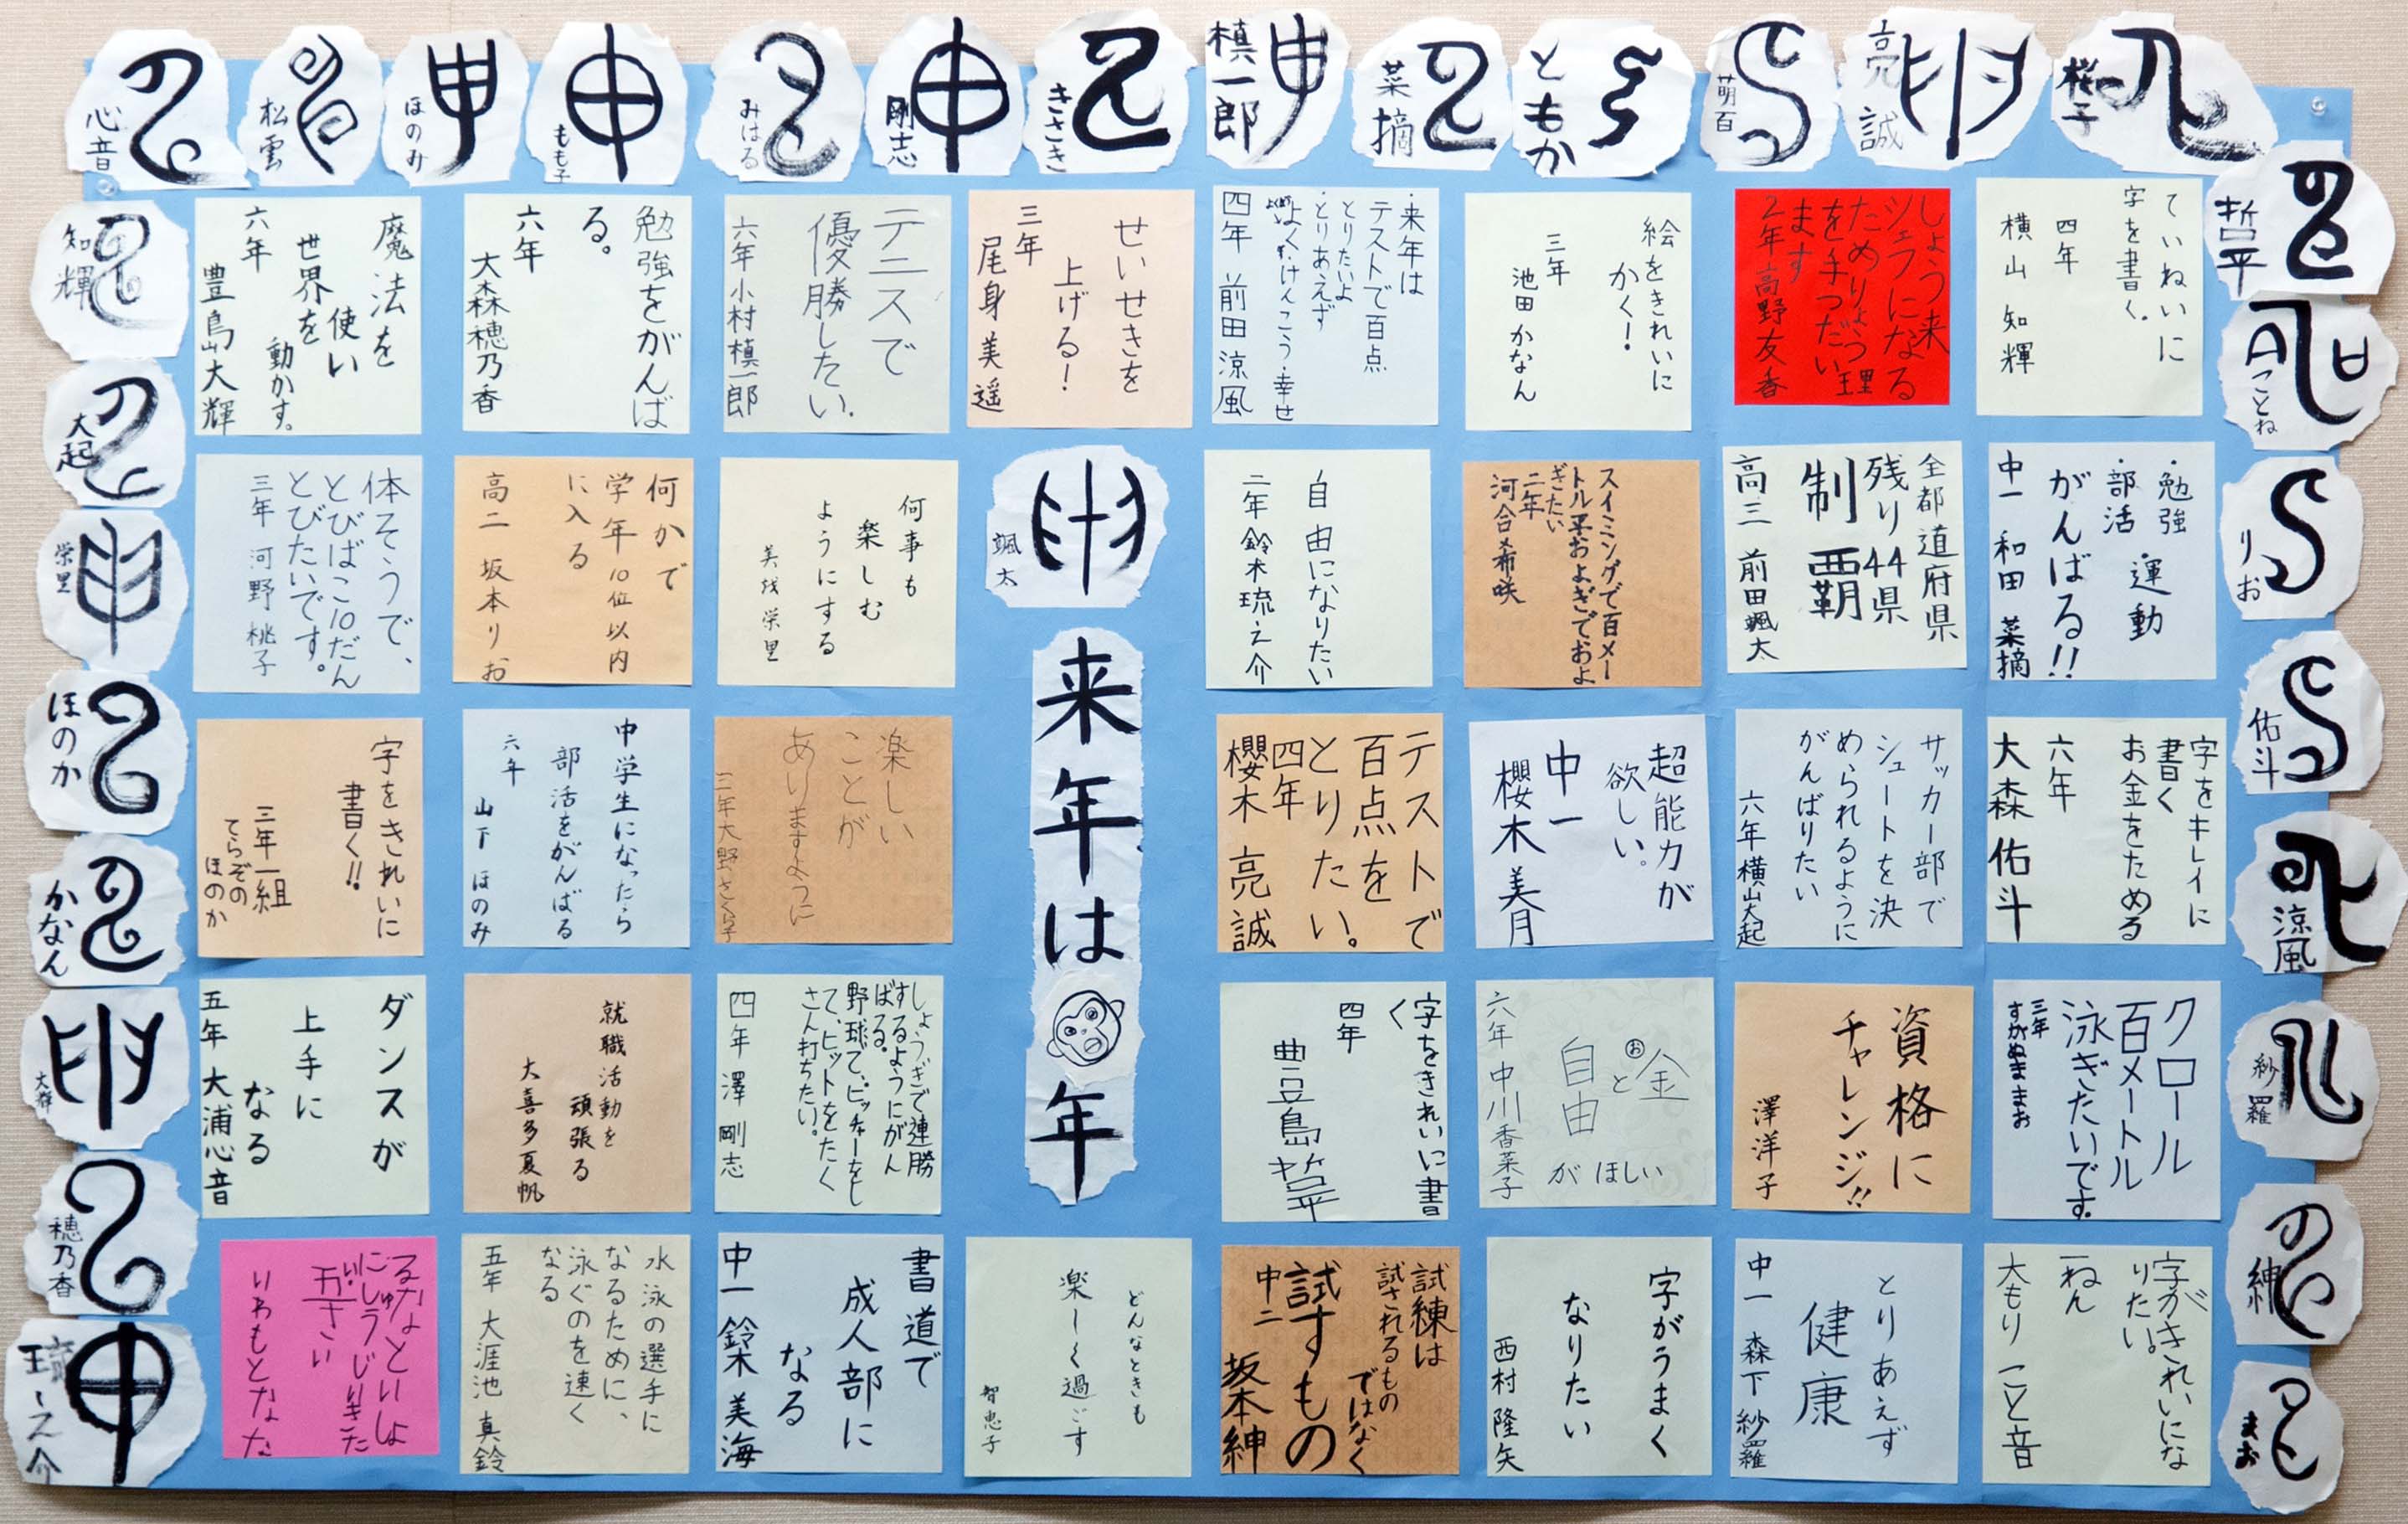 心音
松雲
ほのみ
申
もも子
みはる
申
剛志
きさき
槙一郎
菜摘
ともか
萌百
亮誠
桜子
哲平
ことね
りお
佑斗
涼風
紗羅
紳
まお
知輝
大起
栄里
ほのか
かなん
大輝
穂乃香
申
琉之介
ていねいに
字を書く。
四年
横山 知輝
しょう来
シェフになる
ためりょう理
を手つだい
ます
2年高野友香
絵をきれいに
かく!
三年
池田かなん
・来年は
テストで百点
とりたいよ
・とりあえず
よくわけんこう・幸せ
四年 前田 涼風
せいせきを
上げる!
三年
尾身 美遥
テニスで
優勝したい.
六年 小村槙一郎
勉強をがんば
る。
六年
大森穂乃香
魔法を
使い
世界を
動かす。
六年
豊島大輝
・勉強
・部活 ・運動
がんばる!!
中一 和田 菜摘
全都道府県
残り44県
制覇
高三 前田颯太
スイミングで百メー
トル平およぎでおよ
ぎたい
二年
河合希咲
自由になりたい
二年 鈴木琉之介
颯太
来年は
年
何事も
楽しむ
ようにする
美
栄里
何かで
学年10位以内
に入る
高二 坂本りお
体そうで、
とびばこ10だん
とびたいです。
三年 河野 桃子
字をキレイに
書く
お金をためる
六年
大森 佑斗
サッカー部で
シュートを決
められるように
がんばりたい
六年横山大起
超能力が
欲しい。
中一
櫻木 美月
テストで
百点を
とりたい。
四年
櫻木 亮誠
楽しい
ことが
ありますように
二年大野さくら子
中学生になったら
部活をがんばる
六年
山下 ほのみ
字をきれいに
書く!!
三年一組
てらぞの
ほのか
クロール
百メートル
泳ぎたいです。
三年
すがぬままお
資格に
チャレンジ!!
澤洋子
お金
と
自由
がほしい
六年 中川香菜子
字をきれいに書
く
四年
豊島哲平
しょうぎで連勝
するようにがん
ばる。
野球で、ピッチャーをし
て、ヒットをたく
さん打ちたい。
四年 澤 剛志
就職活動を
頑張る
大喜多夏帆
ダンスが
上手に
なる
五年 大浦心音
字がきれいにな
りたい。
一ねん
大もり こと音
とりあえず
健康
中一 森下 紗羅
字がうまく
なりたい
西村 隆矢
試練は
試されるもの
ではなく
試すもの
中二
坂本紳
どんなときも
楽しく過ごす
智恵子
書道で
成人部に
なる
中一 鈴木 美海
水泳の選手に
なるために、
泳ぐのを速く
なる
五年 大涯池 真鈴
るなといしよ
にしょうがじりきた
いわもとなな